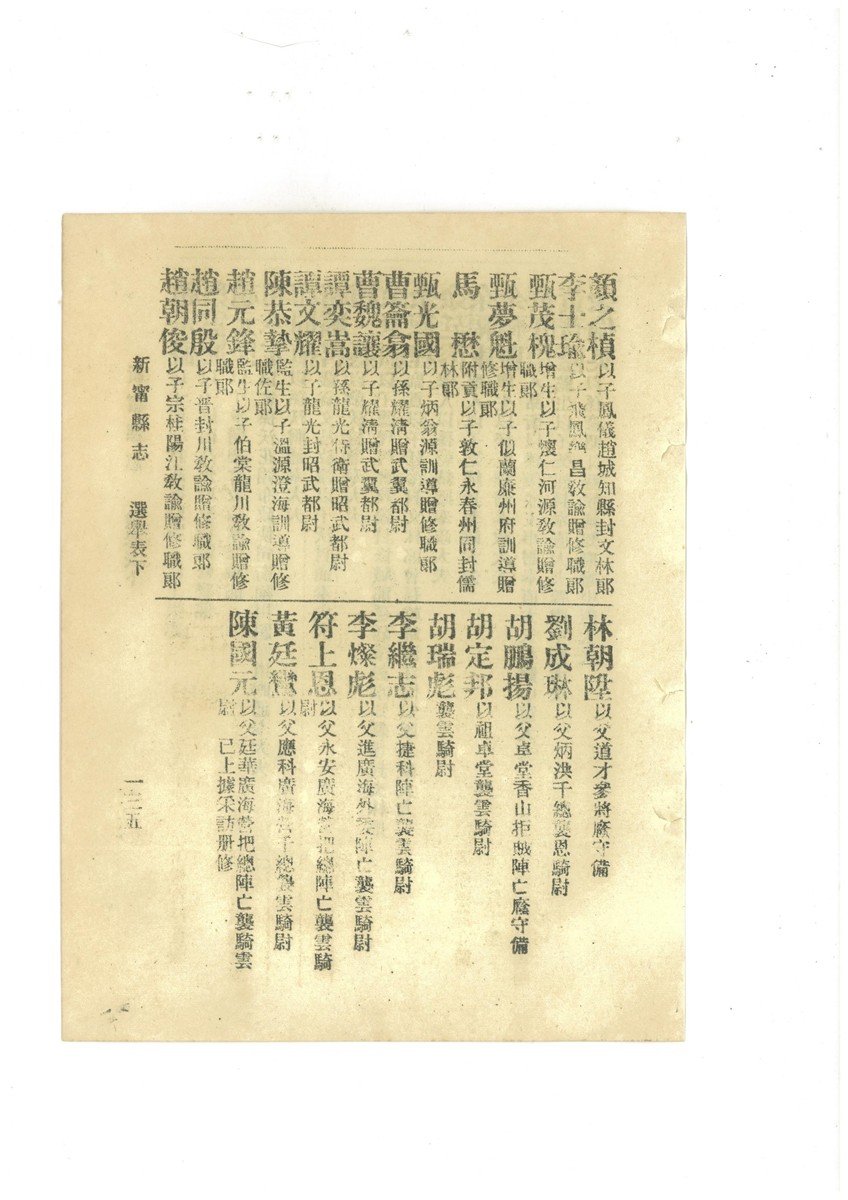 顏之楨以子鳳儀趙城知縣封文林郞
李士瑜以子飛鳳樂昌敎諭贈修職郞
甄茂槐增生以子懷仁河源敎諭贈修
職郞
甄夢魁增生以子似蘭廉州府訓導贈
修職郞
馬懋附貢以子敦仁永春州同封儒
林郞
甄光國以子炳翁源訓導贈修職郞
曹龠翕以孫耀淸贈武翼都尉
曹魏讓以子耀淸贈武翼都尉
譚奕嵩以孫龍光侍衛贈昭武都尉
譚文耀以子龍光封昭武都尉
陳恭摯監生以子溫源澄海訓導贈修
職佐郞
趙元鋒監生以子伯棠龍川敎諭贈修
職郞
趙同殷以子晋封川敎諭贈修職郞
趙朝俊以子宗桂陽江敎諭贈修職郞
林朝陞以父道才參將廕守備
劉成琳以父炳洪千總襲恩騎尉
胡鵬揚以父卓堂香山拒賊陣亡廕守備
胡定邦以祖卓堂襲雲騎尉
胡瑞彪襲雲騎尉
李繼志以父捷科陣亡襲雲騎尉
李燦彪以父進廣海外委陣亡襲雲騎尉
符上恩以父永安廣海營把總陣亡襲雲騎
尉
黃廷以父應科廣海營千總襲雲騎尉
陳國元以父廷華廣海營把總陣亡襲騎雲
尉 已上據采訪册修
新甯縣志 選舉表下
一三五